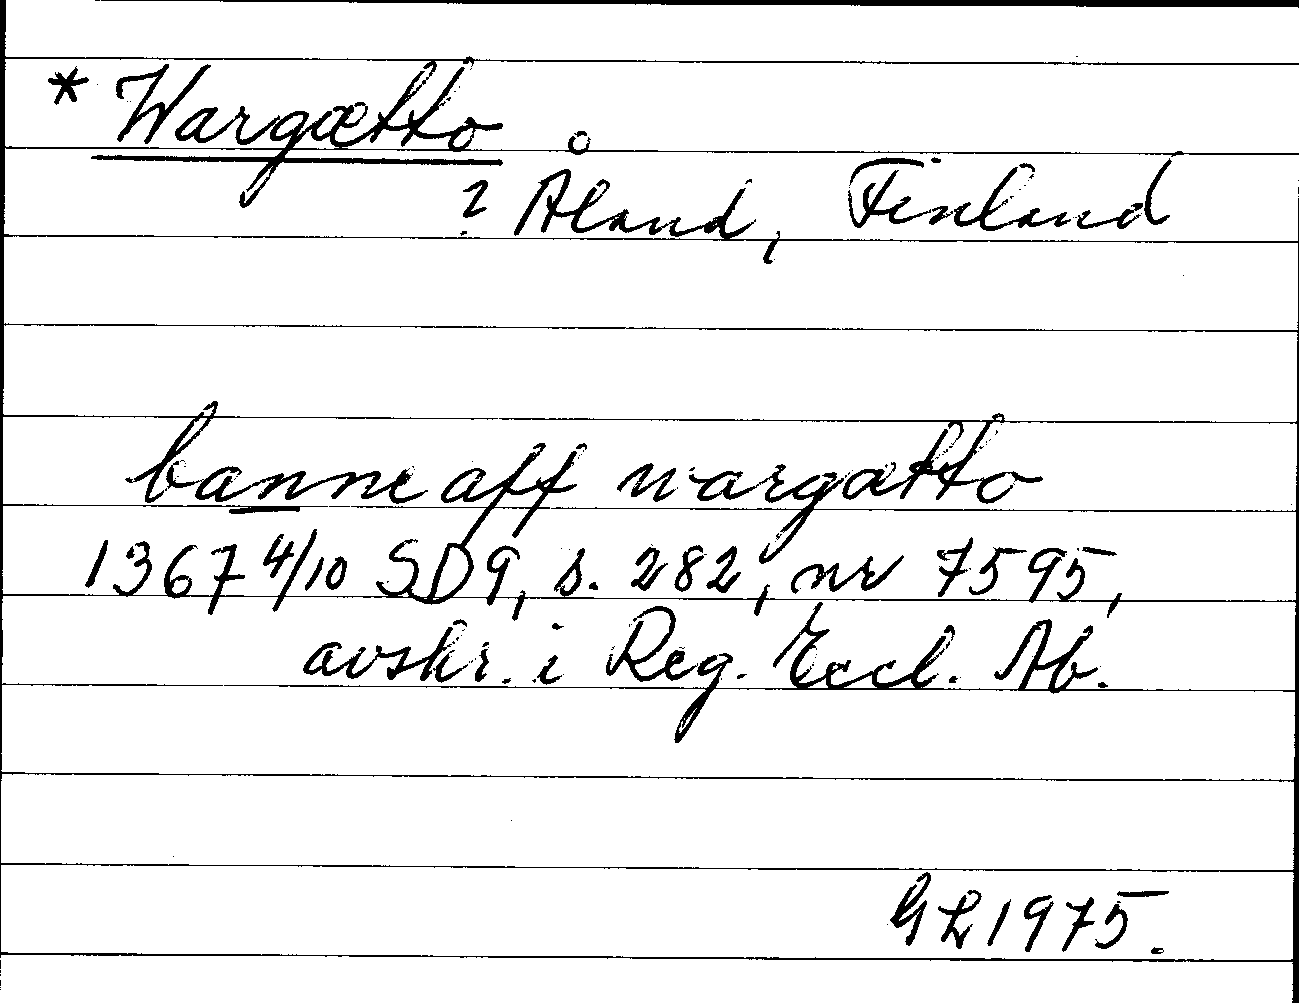 * Wargætto
? Åland, Finland
banne aff wargætto
1367 4/10 SD9, s. 282, nr 7595,
avskr. i Reg. Eccl. Ab.
GL 1975.